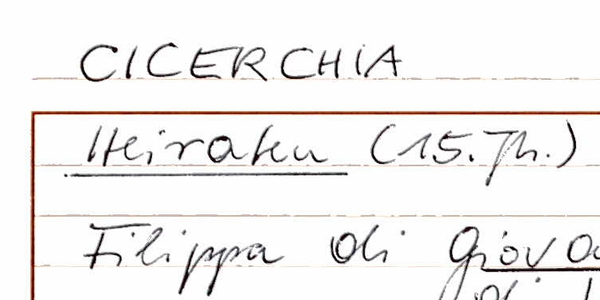 CICERCHIA
Heiraten (15. Jh.)
Filippa di Giova
di